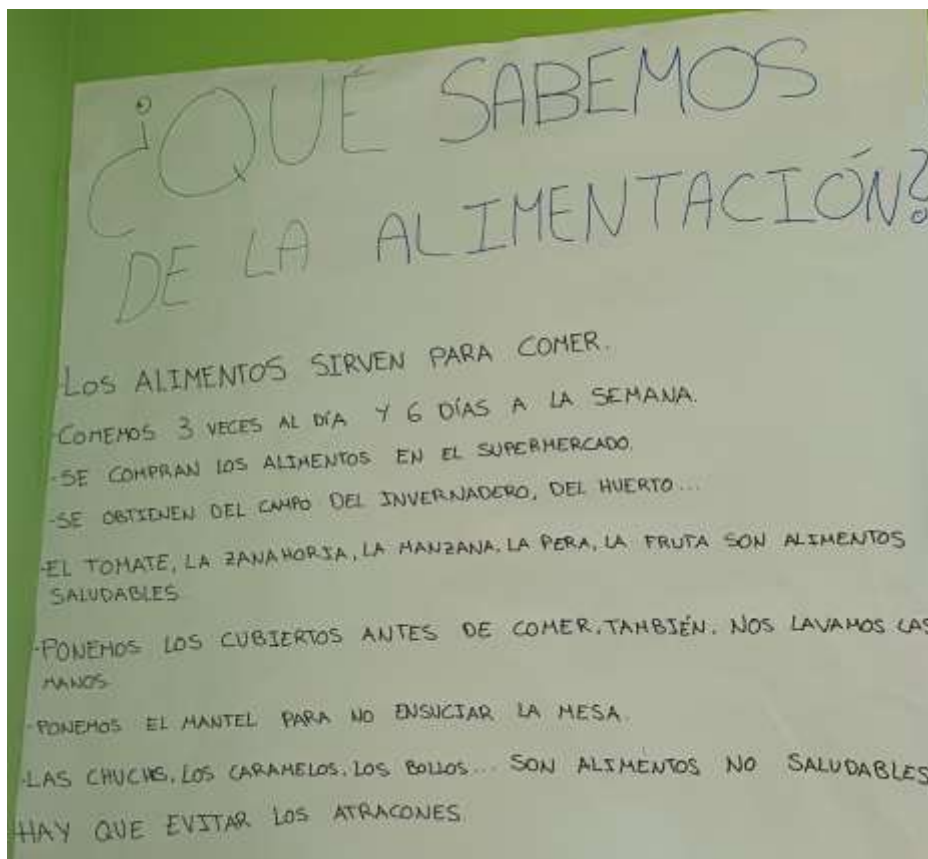 ¿QUÉ SABEMOS
DE LA ALIMENTACIÓN?
·LOS ALIMENTOS SIRVEN PARA COMER.
·COMEMOS 3 VECES AL DÍA Y 6 DÍAS A LA SEMANA.
·SE COMPRAN LOS ALIMENTOS EN EL SUPERMERCADO.
·SE OBTIENEN DEL CAMPO DEL INVERNADERO, DEL HUERTO...
·EL TOMATE, LA ZANAHORIA, LA MANZANA, LA PERA, LA FRUTA SON ALIMENTOS
SALUDABLES.
·PONEMOS LOS CUBIERTOS ANTES DE COMER. TAMBIÉN. NOS LAVAMOS LAS
MANOS.
·PONEMOS EL MANTEL PARA NO ENSUCIAR LA MESA.
·LAS CHUCHES, LOS CARAMELOS, LOS BOLLOS... SON ALIMENTOS NO SALUDABLES
·HAY QUE EVITAR LOS ATRACONES.